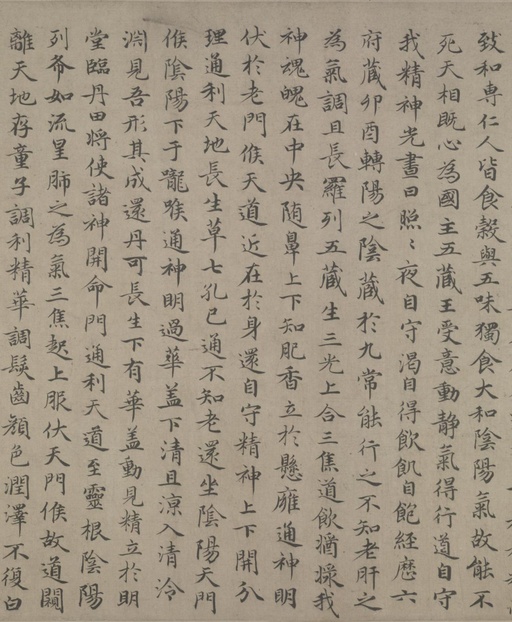 致和専仁人皆食穀與五味獨食大和陰陽氣故能不
死天相既心為國主五蔵王受意動静氣得行道自守
我精神光晝日照〻夜自守渴自得飲飢自飽經歷六
府蔵卯酉轉陽之陰蔵於九常能行之不知老肝之
為氣調且長羅列五蔵生三光上合三焦道飲醬𬋖我
神魂魄在中央随鼻上下知肥香立於懸廱通神明
伏於老門候天道近在於身還自守精神上下開分
理通利天地長生草七孔已通不知老還坐陰陽天門
候陰陽下于嚨喉通神明過華盖下清且涼入清泠
淵見吾形其成還丹可長生下有華盖動見精立於明
堂臨丹田將使諸神開命門通利天道至靈根陰陽
列布如流星肺之為氣三焦起上服伏天門候故道闚
離天地存童子調利精華調髮齒顔色潤澤不復白